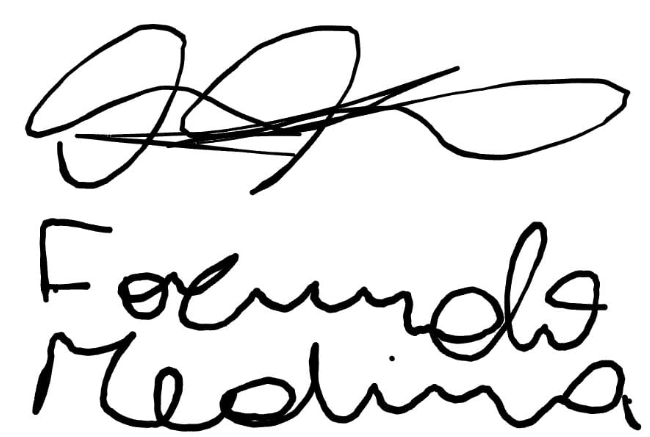 Facundo
Medina